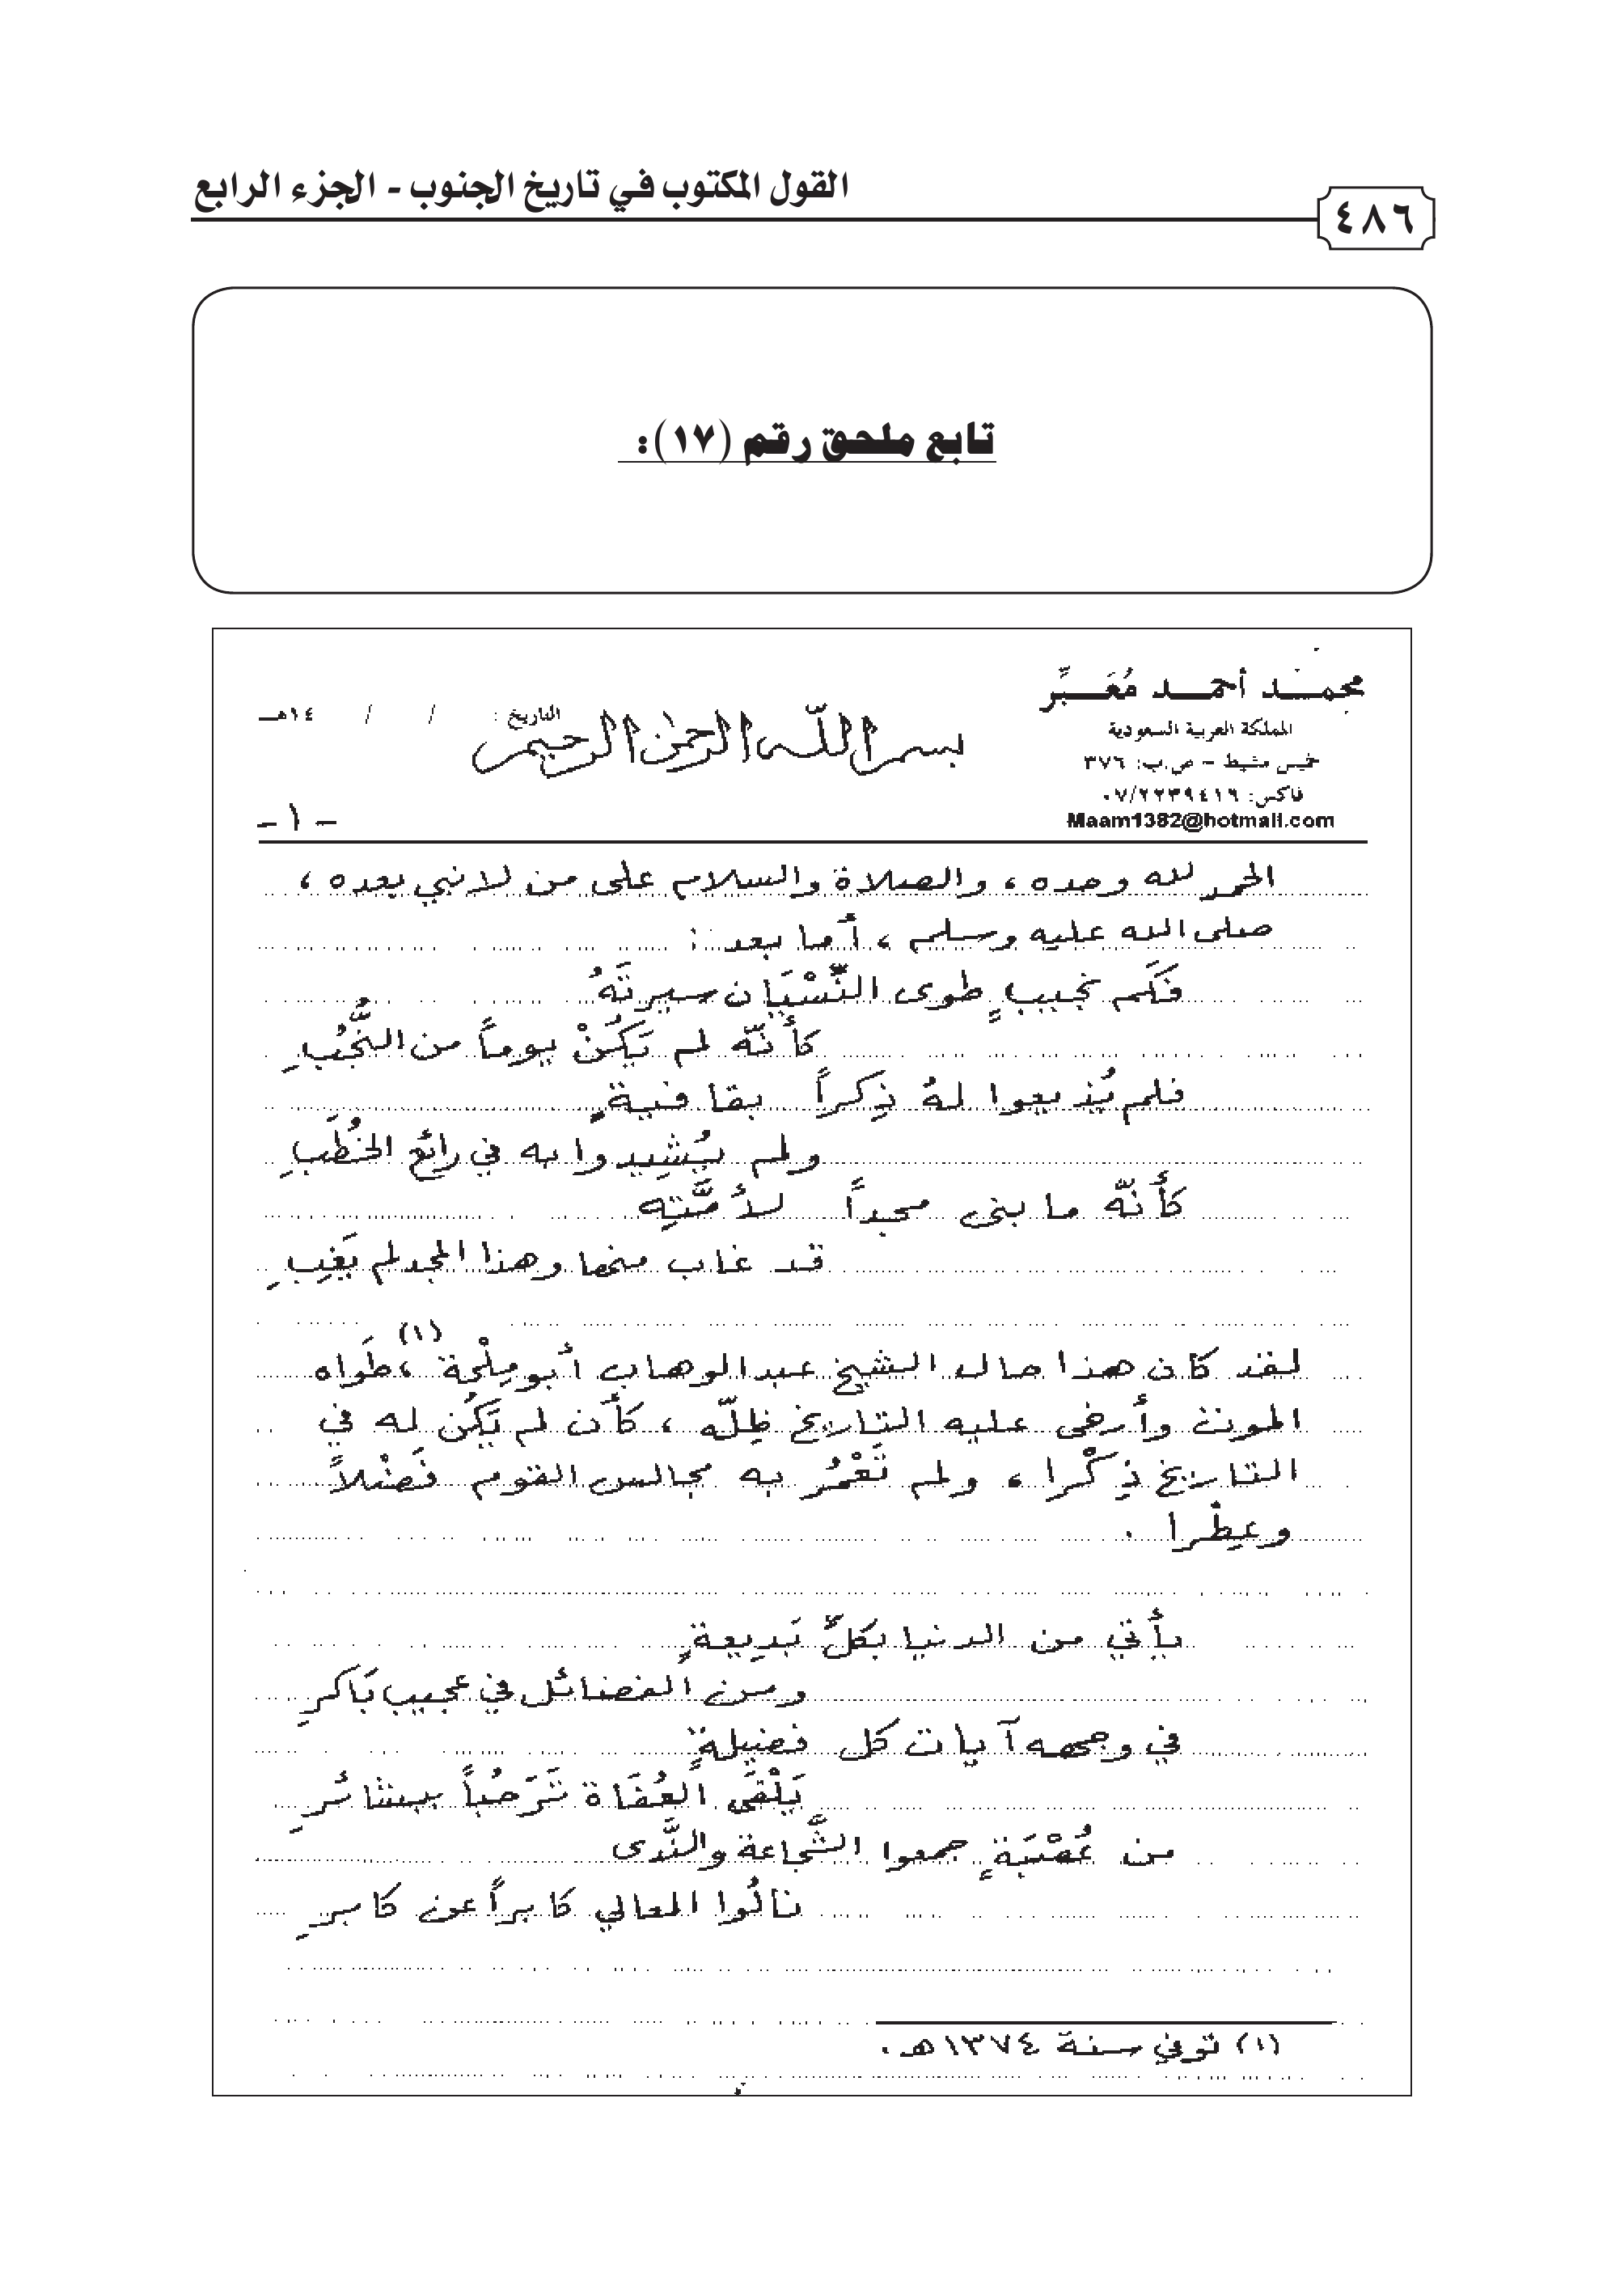 القول المكتوب في تاريخ الجنوب - الجزء الرابع
٤٨٦
تابع ملحق رقم (١٧):
محمد أحمد مُعَبِّر
المملكة العربية السعودية
خميس مشيط - ص.ب: ٣٧٦
فاكس: ٠٧/٢٢٣٩٤١٦
Maam1382@hotmail.com
بسم الله الرحمن الرحيم
التاريخ : / / ١٤هـ
- ١ -
الحمد لله وحده ، والصلاة والسلام على من لا نبي بعده ،
صلى الله عليه وسلم ، أما بعد :
فَكَم نجيبٍ طوى النِّسْيَان سيرتَهُ
كأنّه لم يَكُنْ يوماً من النُّجُبِ
فلم يُذيعوا لهُ ذِكراً بقافيةٍ
ولم يُشِيدوا به في رائع الخُطَبِ
كأنّه ما بنى مجداً لأمَّتِه
قد غاب منها وهذا المجد لم يَغِبِ
لقد كان هذا حال الشيخ عبدالوهاب أبو مِلْحة (١) ، طَواه
الموت وأرخى عليه التاريخ ظِلّه ، كأن لم يَكُن له في
التاريخ ذِكْرا ، ولم تَعْمُر به مجالس القوم فَضْلاً
وعِطْرا .
يأتي من الدنيا بكلِّ بَدِيعةٍ
ومن الفضائل في عجيب بَاكرِ
في وجهه آيات كل فضيلةٍ
يَلْقَى العُفَاة تَرَحُباً ببشائرِ
من عُصْبَةٍ جمعوا الشَّجاعة والنَّدى
نالُوا المعالي كابراً عن كابرِ
(١) توفي سنة ١٣٧٤هـ .